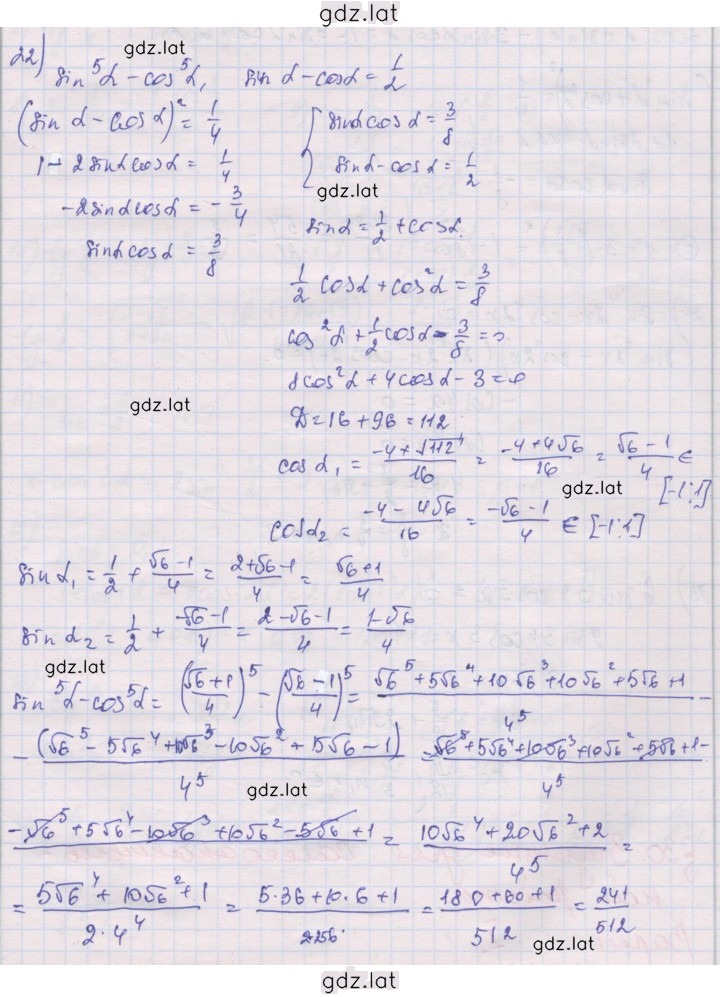 gdz.lat
22)
gdz.lat
sin⁵α - cos⁵α, sin α - cosα = 1/2
(sin α - cos α)² = 1/4
{ sinαcosα = 3/8
1 - 2sinαcosα = 1/4
sinα - cosα = 1/2
gdz.lat
-2sinαcosα = -3/4
sinα = 1/2 + cosα.
sinαcosα = 3/8
1/2 cosα + cos²α = 3/8
cos²α + 1/2 cosα - 3/8 = 0
8cos²α + 4cosα - 3 = 0
gdz.lat
D = 16 + 96 = 112
cosα₁ = (-4+√112)/16 = (-4+4√6)/16 = (√6-1)/4 ∈ [-1;1]
gdz.lat
cosα₂ = (-4-4√6)/16 = (-√6-1)/4 ∈ [-1;1]
sinα₁ = 1/2 + (√6-1)/4 = (2+√6-1)/4 = (√6+1)/4
sinα₂ = 1/2 + (-√6-1)/4 = (2-√6-1)/4 = (1-√6)/4
gdz.lat
sin⁵α - cos⁵α = ((√6+1)/4)⁵ - ((√6-1)/4)⁵ = (√6⁵ + 5√6⁴ + 10√6³ + 10√6² + 5√6 + 1)/4⁵ -
- (√6⁵ - 5√6⁴ + 10√6³ - 10√6² + 5√6 - 1)/4⁵ = √6⁵ + 5√6⁴ + 10√6³ + 10√6² + 5√6 + 1 - / 4⁵
gdz.lat
-√6⁵ + 5√6⁴ - 10√6³ + 10√6² - 5√6 + 1 = (10√6⁴ + 20√6² + 2)/4⁵ =
= (5√6⁴ + 10√6² + 1)/(2·4⁴) = (5·36 + 10·6 + 1)/(2·256) = (180 + 60 + 1)/512 = 241/512
gdz.lat
gdz.lat